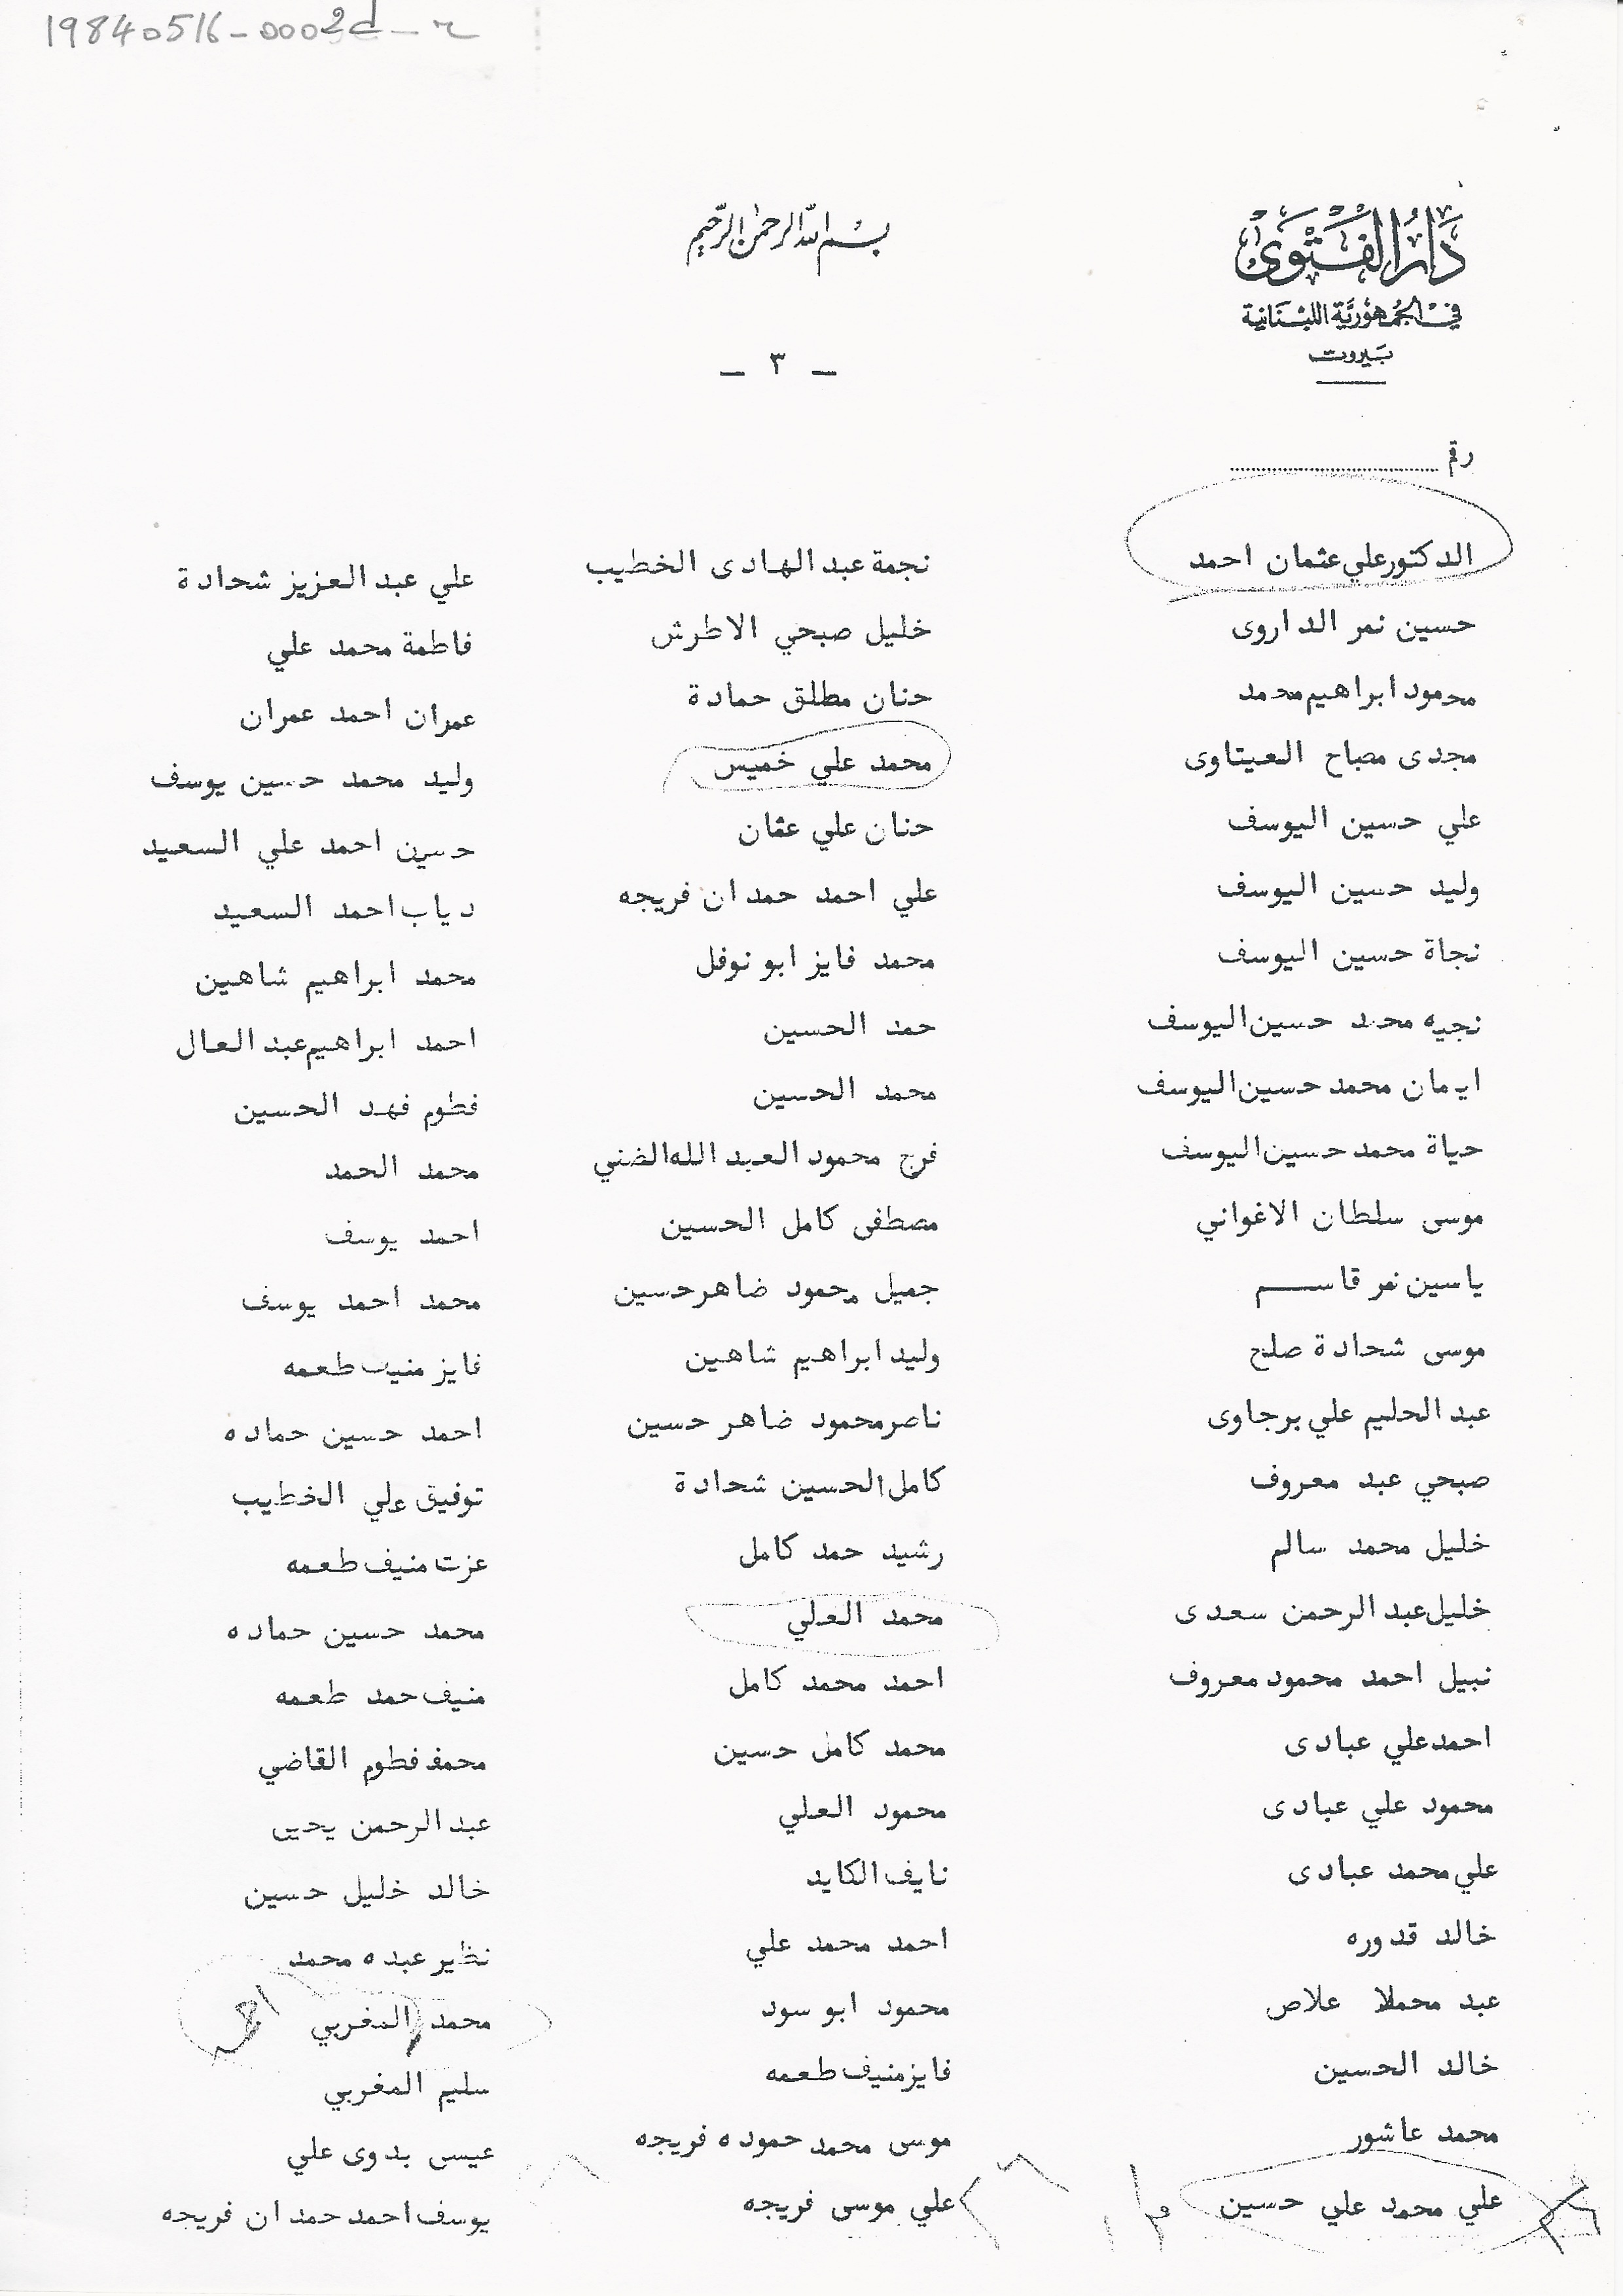 19840516-0002d-r
دار الفتوى
في الجمهورية اللبنانية
بيروت
بسم الله الرحمن الرحيم
- ٣ -
رقم
الدكتور علي عثمان احمد
حسين نمر الداروى
محمود ابراهيم محمد
مجدى مصباح العيتاوى
علي حسين اليوسف
وليد حسين اليوسف
نجاة حسين اليوسف
نجيه محمد حسين اليوسف
ايمان محمد حسين اليوسف
حياة محمد حسين اليوسف
موسى سلطان الاغواني
ياسين نمر قاسم
موسى شحادة صلح
عبد الحليم علي برجاوى
صبحي عبد معروف
خليل محمد سالم
خليل عبد الرحمن سعدى
نبيل احمد محمود معروف
احمد علي عبادى
محمود علي عبادى
علي محمد عبادى
خالد قدوره
عبد محملا علاص
خالد الحسين
محمد عاشور
علي محمد علي حسين
نجمة عبد الهادى الخطيب
خليل صبحي الاطرش
حنان مطلق حمادة
محمد علي خميس
حنان علي عثمان
علي احمد حمدان فريجه
محمد فايز ابو نوفل
حمد الحسين
محمد الحسين
فرج محمود العبد الله الضني
مصطفى كامل الحسين
جميل محمود ضاهر حسين
وليد ابراهيم شاهين
ناصر محمود ضاهر حسين
كامل الحسين شحادة
رشيد حمد كامل
محمد العلي
احمد محمد كامل
محمد كامل حسين
محمود العلي
نايف الكايد
احمد محمد علي
محمود ابو سود
فايز منيف طعمه
موسى محمد حموده فريجه
علي موسى فريجه
علي عبد العزيز شحادة
فاطمة محمد علي
عمران احمد عمران
وليد محمد حسين يوسف
حسين احمد علي السعيد
دياب احمد السعيد
محمد ابراهيم شاهين
احمد ابراهيم عبد العال
فطوم فهد الحسين
محمد الحمد
احمد يوسف
محمد احمد يوسف
فايز منيف طعمه
احمد حسين حماده
توفيق علي الخطيب
عزت منيف طعمه
محمد حسين حماده
منيف حمد طعمه
محمد فطوم القاضي
عبد الرحمن يحيى
خالد خليل حسين
نظير عبده محمد
محمد المغربي
سليم المغربي
عيسى بدوى علي
يوسف احمد حمدان فريجه